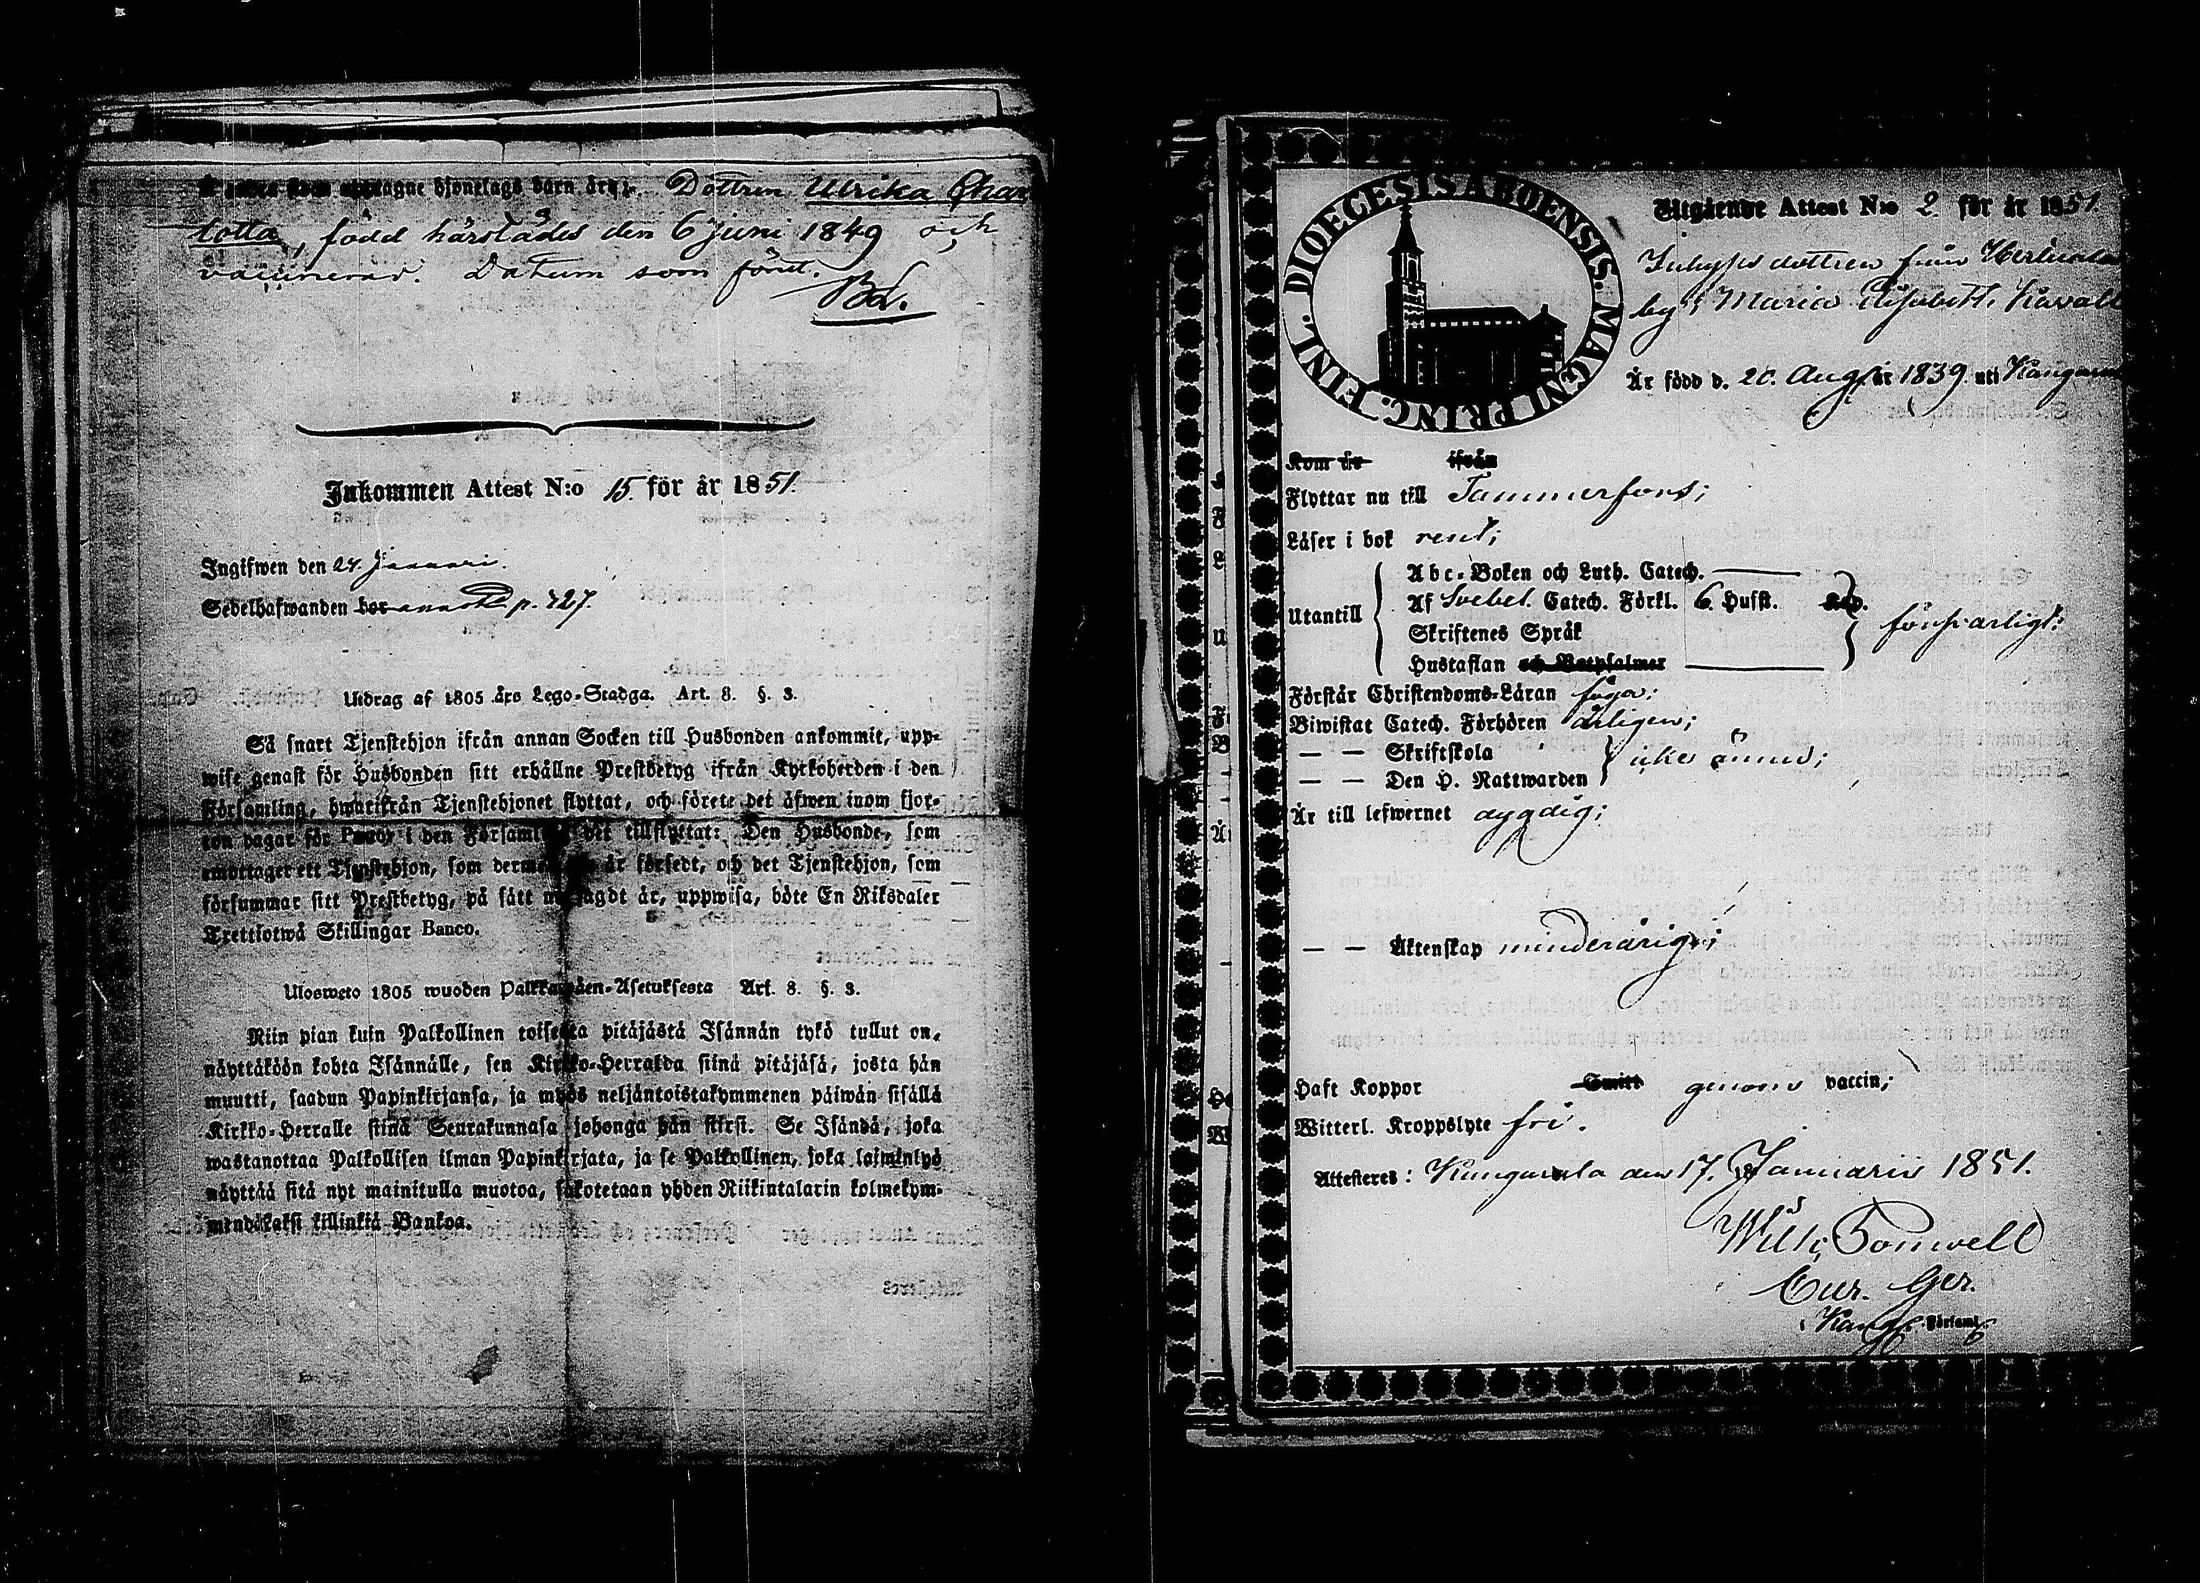 barn äro: Dottren Ulrika Char
lotta, född härstädes den 6 Juni 1849 och
vaccinerad. Datum som förut.
BL.
Inkommen Attest N:o 15. för år 1851.
Ingifwen den 24 Januari.
Sedelhafwanden bor p. 727.
Utdrag af 1805 års Lego-Stadga. Art. 8. §. 3.
Så snart Tjenstehjon ifrån annan Socken till Husbonden ankommit, upp-
wise genast för Husbonden sitt erhållne Prestbetyg ifrån Kyrkoherden i den
Församling, hwarifrån Tjenstehjonet flyttat, och förete det äfwen inom fjor-
ton dagar för Pastor i den Församling dit tillflyttat: Den Husbonde, som
emottager ett Tjenstehjon, som dermed är försedt, och det Tjenstehjon, som
försummar sitt Prestbetyg, på sätt nu sagdt är, uppwisa, böte En Riksdaler
Trettiotwå Skillingar Banco.
Ulosweto 1805 wuoden Palkkawäen-Asetuksesta Art. 8. §. 3.
Niin pian kuin Palkollinen toisesta pitäjästä Isännän tykö tullut on,
näyttäköön kohta Isännälle, sen Kirkko-Herralda siinä pitäjäsä, josta hän
muutti, saadun Papinkirjansa, ja myös neljäntoistakymmenen päiwän sisällä
Kirkko-Herralle siinä Seurakunnasa johonga hän siirsi. Se Isändä, joka
wastanottaa Palkollisen ilman Papinkirjata, ja se Palkollinen, joka laiminlyö
näyttää sitä nyt mainitulla muotoa, sakotetaan yhden Riikintalarin kolmekym-
mendäkaksi killinkiä Bankoa.
DIOECESIS ABOENSIS. MAGNI PRINC. FINL.
Utgående Attest N:o 2. för år 1851.
Inhyses dottren från
by, Maria Elisabeth Kavall
Är född d. 20. Aug. år 1839. uti Kangasa
Kom år ifrån
Flyttar nu till Tammerfors;
Läser i bok rent;
Utantill
Abc-Boken och Luth. Catech.
Af Svebel. Catech. Förkl. 6. Hufst. Kap.
Skriftenes Språk
Hustaflan och Botpsalmer
försvarligt:
Förstår Christendoms-Läran föga;
Biwistat Catech. Förhören årligen;
— — Skriftskola
— — Den H. Nattwarden
icke ännu;
Är till lefwernet dygdig;
— — Äktenskap minderårig;
Haft Koppor Smitt genom vaccin;
Witterl. Kroppslyte fri.
Attesteres: Kangasala den 17. Januarii 1851.
Wilh. Bonwell
Cur. Ger.
Kang. Församl.